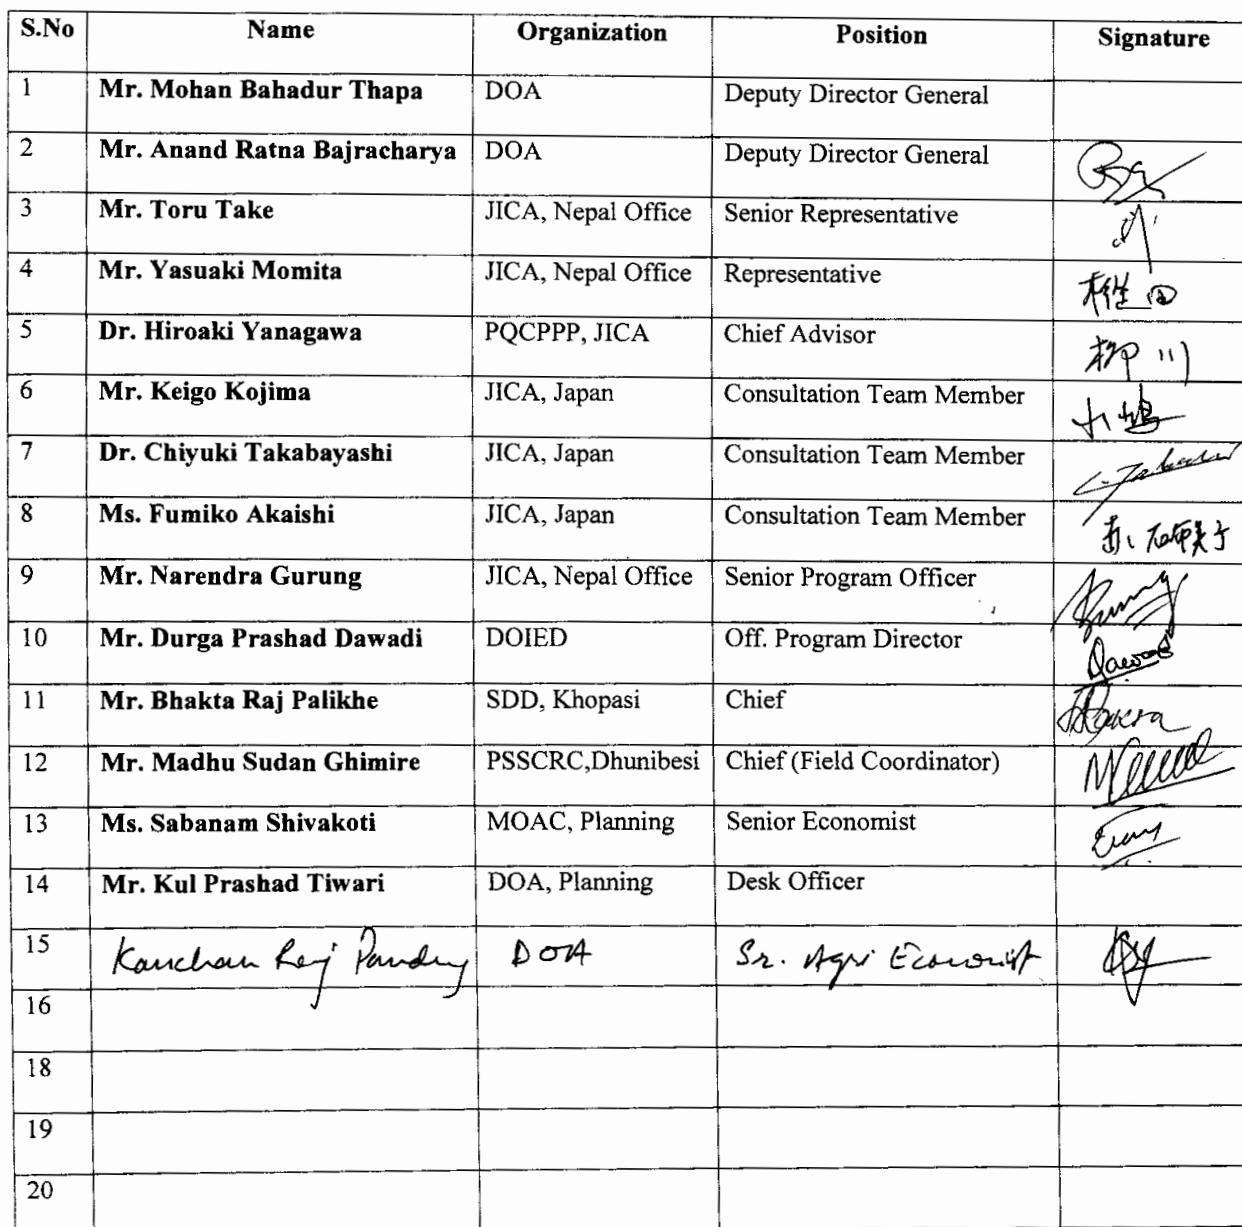 S.No Name Organization Position Signature
1 Mr. Mohan Bahadur Thapa DOA Deputy Director General
2 Mr. Anand Ratna Bajracharya DOA Deputy Director General
3 Mr. Toru Take JICA, Nepal Office Senior Representative
4 Mr. Yasuaki Momita JICA, Nepal Office Representative
5 Dr. Hiroaki Yanagawa PQCPPP, JICA Chief Advisor 柳川
6 Mr. Keigo Kojima JICA, Japan Consultation Team Member 小嶋
7 Dr. Chiyuki Takabayashi JICA, Japan Consultation Team Member
8 Ms. Fumiko Akaishi JICA, Japan Consultation Team Member
9 Mr. Narendra Gurung JICA, Nepal Office Senior Program Officer
10 Mr. Durga Prashad Dawadi DOIED Off. Program Director
11 Mr. Bhakta Raj Palikhe SDD, Khopasi Chief
12 Mr. Madhu Sudan Ghimire PSSCRC,Dhunibesi Chief (Field Coordinator)
13 Ms. Sabanam Shivakoti MOAC, Planning Senior Economist
14 Mr. Kul Prashad Tiwari DOA, Planning Desk Officer
15 Kanchan Raj Pandey DOA Sr. Agri Economist
16
18
19
20